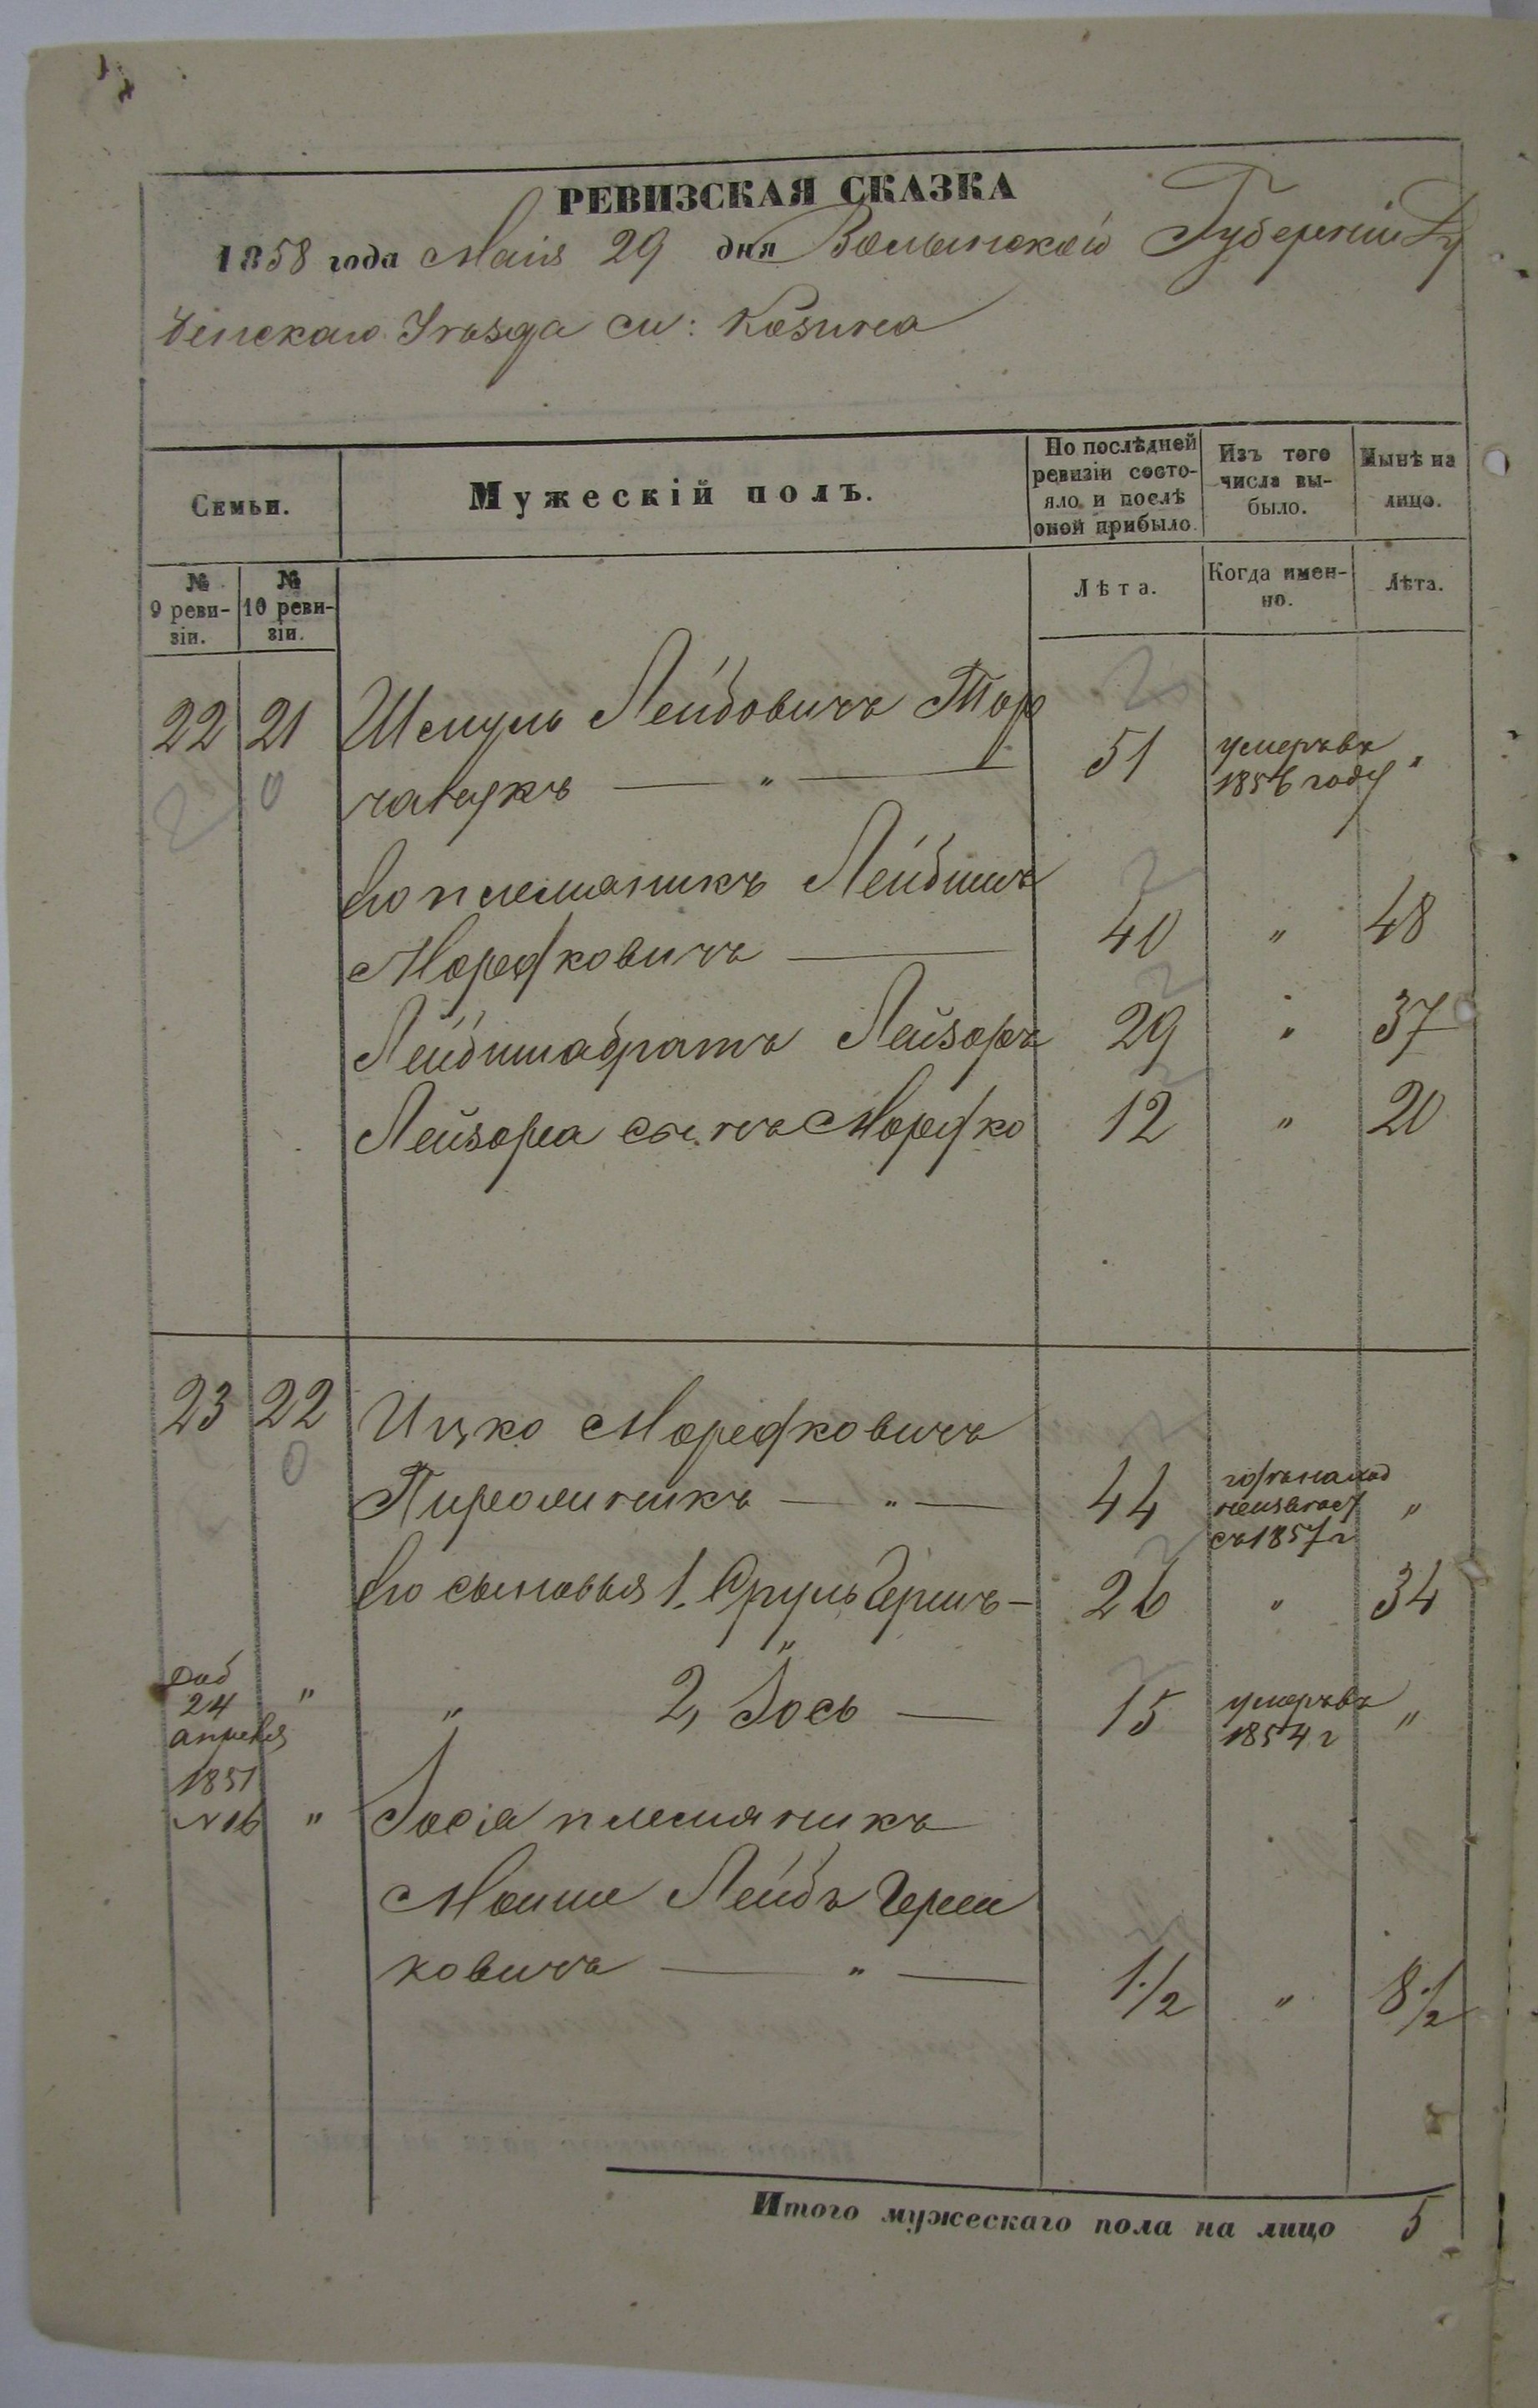 РЕВИЗСКАЯ СКАЗКА
1858 года Маія 29 дня Волынской Губерніи Ду
бенскаго Уѣзда м: Козина
Семьи.
Мужескій полъ.
По послѣдней ревизіи состо-
яло и послѣ оной прибыло.
Изъ того числа вы-
было.
Нынѣ на лицо.
№ 9 реви-
зіи.
№ 10 реви-
зіи.
Лѣта.
Когда имен-
но.
Лѣта.
22 21 Шмуль Лейбовичъ Тор
чанукъ — „ — 51 умеръ въ 1856 году „
0
Его племяникъ Лейбишъ
Мордковичъ — 40 „ 48
Лейбиша братъ Лейзоръ 29 „ 37
Лейзора сынъ Мордко 12 „ 20
23 22 Ицко Мордковичъ
0
— „ — 44 съ 1857 г „
Его сыновья 1. Сруль Гершъ — 26 „ 34
„ „ 2, Іось — 15 умеръ въ 1854 г „
24 апреля
1851
№ 16 „ Іося племяникъ
Мошко Лейбъ Герш
ковичъ — „ — 1 1/2 „ 8 1/2
Итого мужескаго пола на лицо 5